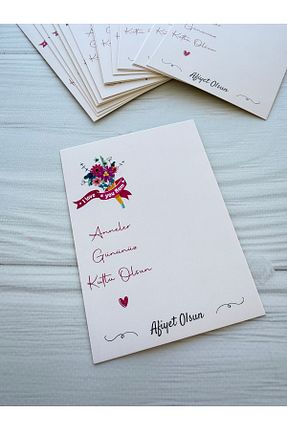 Kutlu Olsun
Afiyet Olsun
I love you Mom
Anneler
Gününüz
Kutlu Olsun
Afiyet Olsun